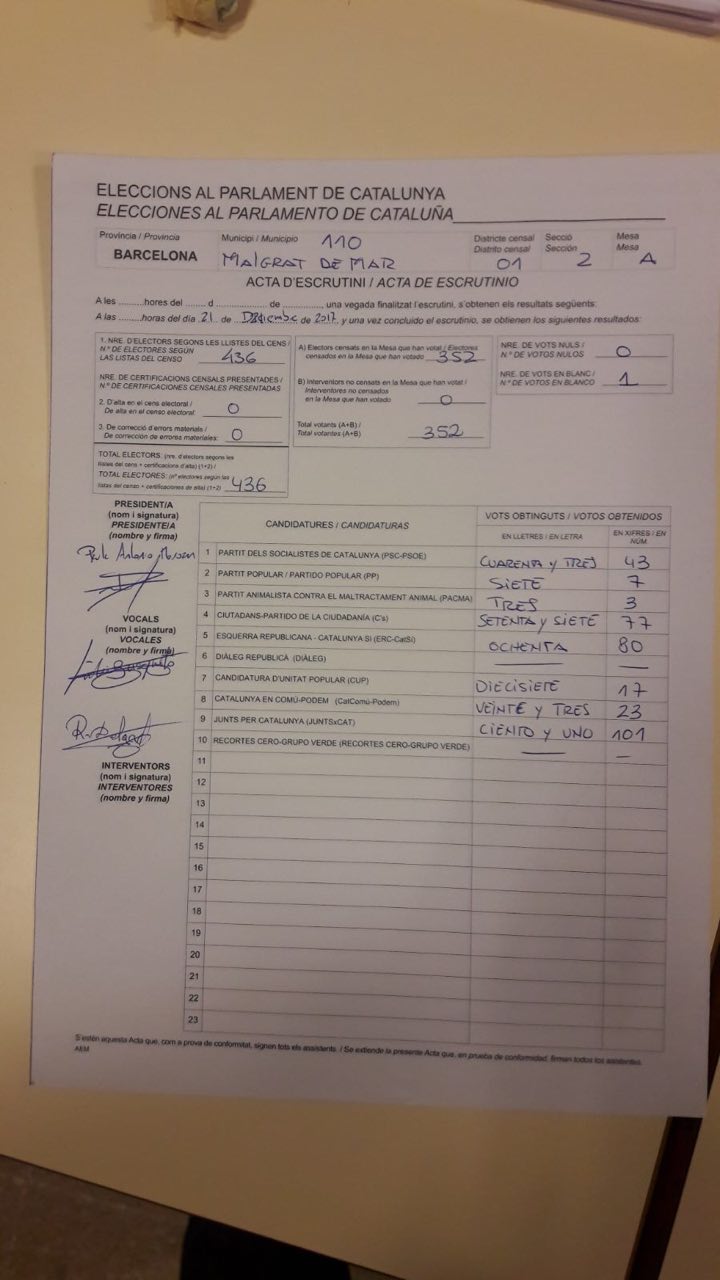 ELECCIONS AL PARLAMENT DE CATALUNYA
ELECCIONES AL PARLAMENTO DE CATALUÑA
Província / Provincia
BARCELONA
Municipi / Municipio 110
MALGRAT DE MAR
Districte censal
Distrito censal
01
Secció
Sección
2
Mesa
Mesa
A
ACTA D'ESCRUTINI / ACTA DE ESCRUTINIO
A les .........hores del ....... d ................... de ............., una vegada finalitzat l'escrutini, s'obtenen els resultats següents:
A las .........horas del día 21 de Diciembre de 2017 y una vez concluido el escrutinio, se obtienen los siguientes resultados:
1. NRE. D'ELECTORS SEGONS LES LLISTES DEL CENS /
N.º DE ELECTORES SEGÚN
LAS LISTAS DEL CENSO 436
NRE. DE CERTIFICACIONS CENSALS PRESENTADES /
N.º DE CERTIFICACIONES CENSALES PRESENTADAS
2. D'alta en el cens electoral /
De alta en el censo electoral: 0
3. De correcció d'errors materials /
De corrección de errores materiales: 0
TOTAL ELECTORS: (nre. d'electors segons les
llistes del cens + certificacions d'alta) (1+2) /
TOTAL ELECTORES: (nº electores según las
listas del censo + certificaciones de alta) (1+2) 436
A) Electors censats en la Mesa que han votat / Electores
censados en la Mesa que han votado 352
B) Interventors no censats en la Mesa que han votat /
Interventores no censados
en la Mesa que han votado 0
Total votants (A+B) /
Total votantes (A+B) 352
NRE. DE VOTS NULS /
N.º DE VOTOS NULOS 0
NRE. DE VOTS EN BLANC /
N.º DE VOTOS EN BLANCO 1
PRESIDENT/A
(nom i signatura)
PRESIDENTE/A
(nombre y firma)
VOCALS
(nom i signatura)
VOCALES
(nombre y firma)
INTERVENTORS
(nom i signatura)
INTERVENTORES
(nombre y firma)
CANDIDATURES / CANDIDATURAS
VOTS OBTINGUTS / VOTOS OBTENIDOS
EN LLETRES / EN LETRA
EN XIFRES / EN NÚM
1 PARTIT DELS SOCIALISTES DE CATALUNYA (PSC-PSOE) CUARENTA Y TRES 43
2 PARTIT POPULAR / PARTIDO POPULAR (PP) SIETE 7
3 PARTIT ANIMALISTA CONTRA EL MALTRACTAMENT ANIMAL (PACMA) TRES 3
4 CIUTADANS-PARTIDO DE LA CIUDADANÍA (C's) SETENTA Y SIETE 77
5 ESQUERRA REPUBLICANA - CATALUNYA SÍ (ERC-CatSí) OCHENTA 80
6 DIÀLEG REPUBLICÀ (DIÀLEG) — —
7 CANDIDATURA D'UNITAT POPULAR (CUP) DIECISIETE 17
8 CATALUNYA EN COMÚ-PODEM (CatComú-Podem) VEINTE Y TRES 23
9 JUNTS PER CATALUNYA (JUNTSxCAT) CIENTO Y UNO 101
10 RECORTES CERO-GRUPO VERDE (RECORTES CERO-GRUPO VERDE) — —
11
12
13
14
15
16
17
18
19
20
21
22
23
S'estén aquesta Acta que, com a prova de conformitat, signen tots els assistents. / Se extiende la presente Acta que, en prueba de conformidad, firman todos los asistentes.
AEM